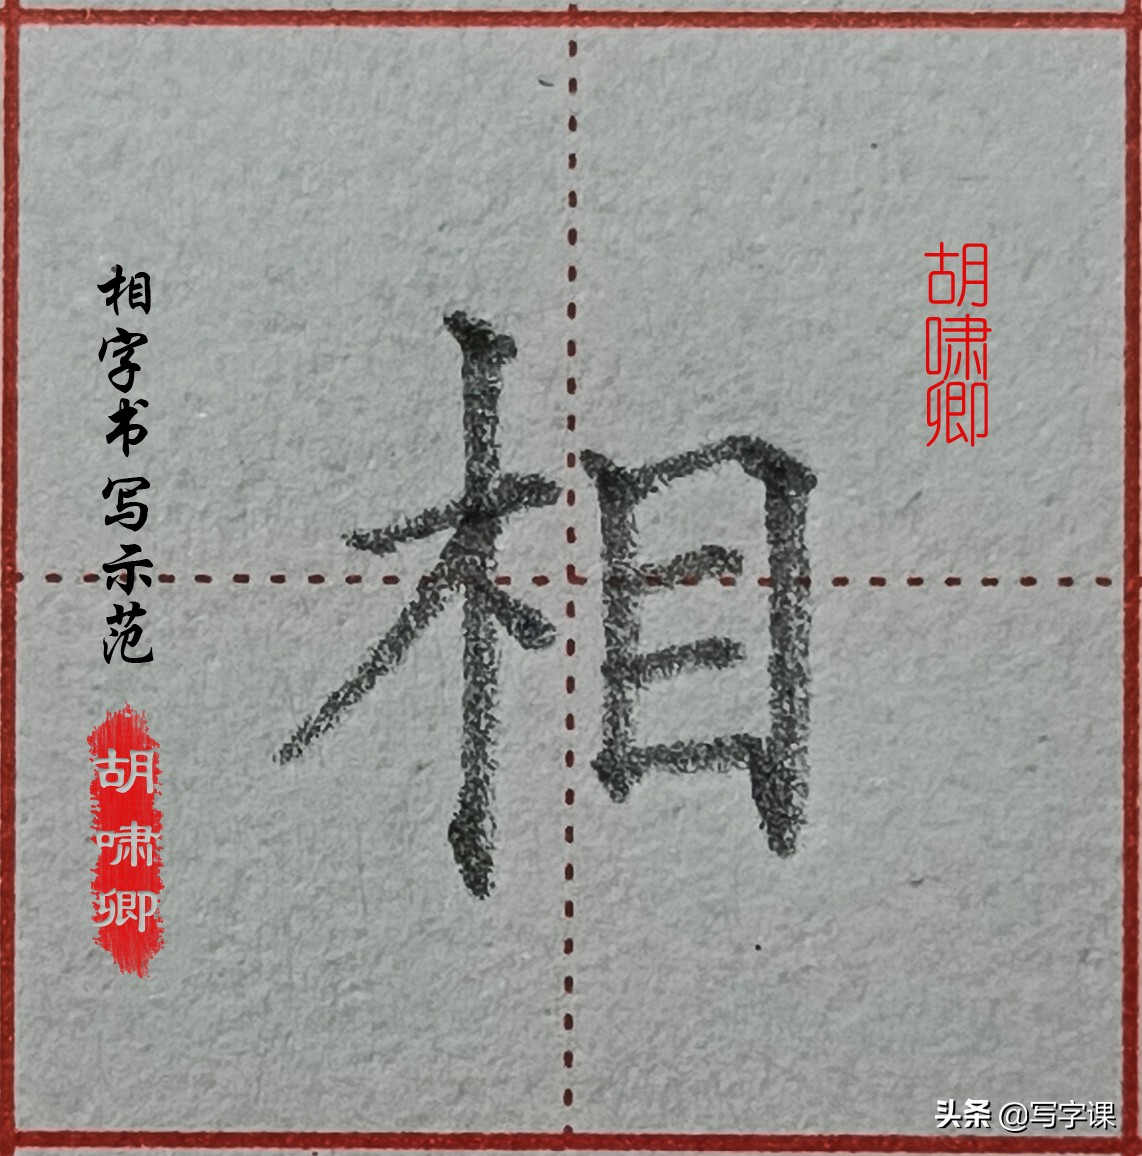 相字书写示范
胡啸卿
相
胡啸卿
头条 @写字课